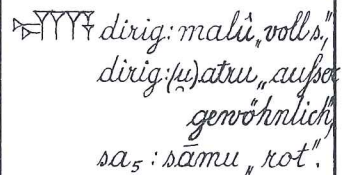 dirig: malû „voll s.",
dirig: (u̯)atru „außer
gewöhnlich",
sa₅ : sāmu „rot".